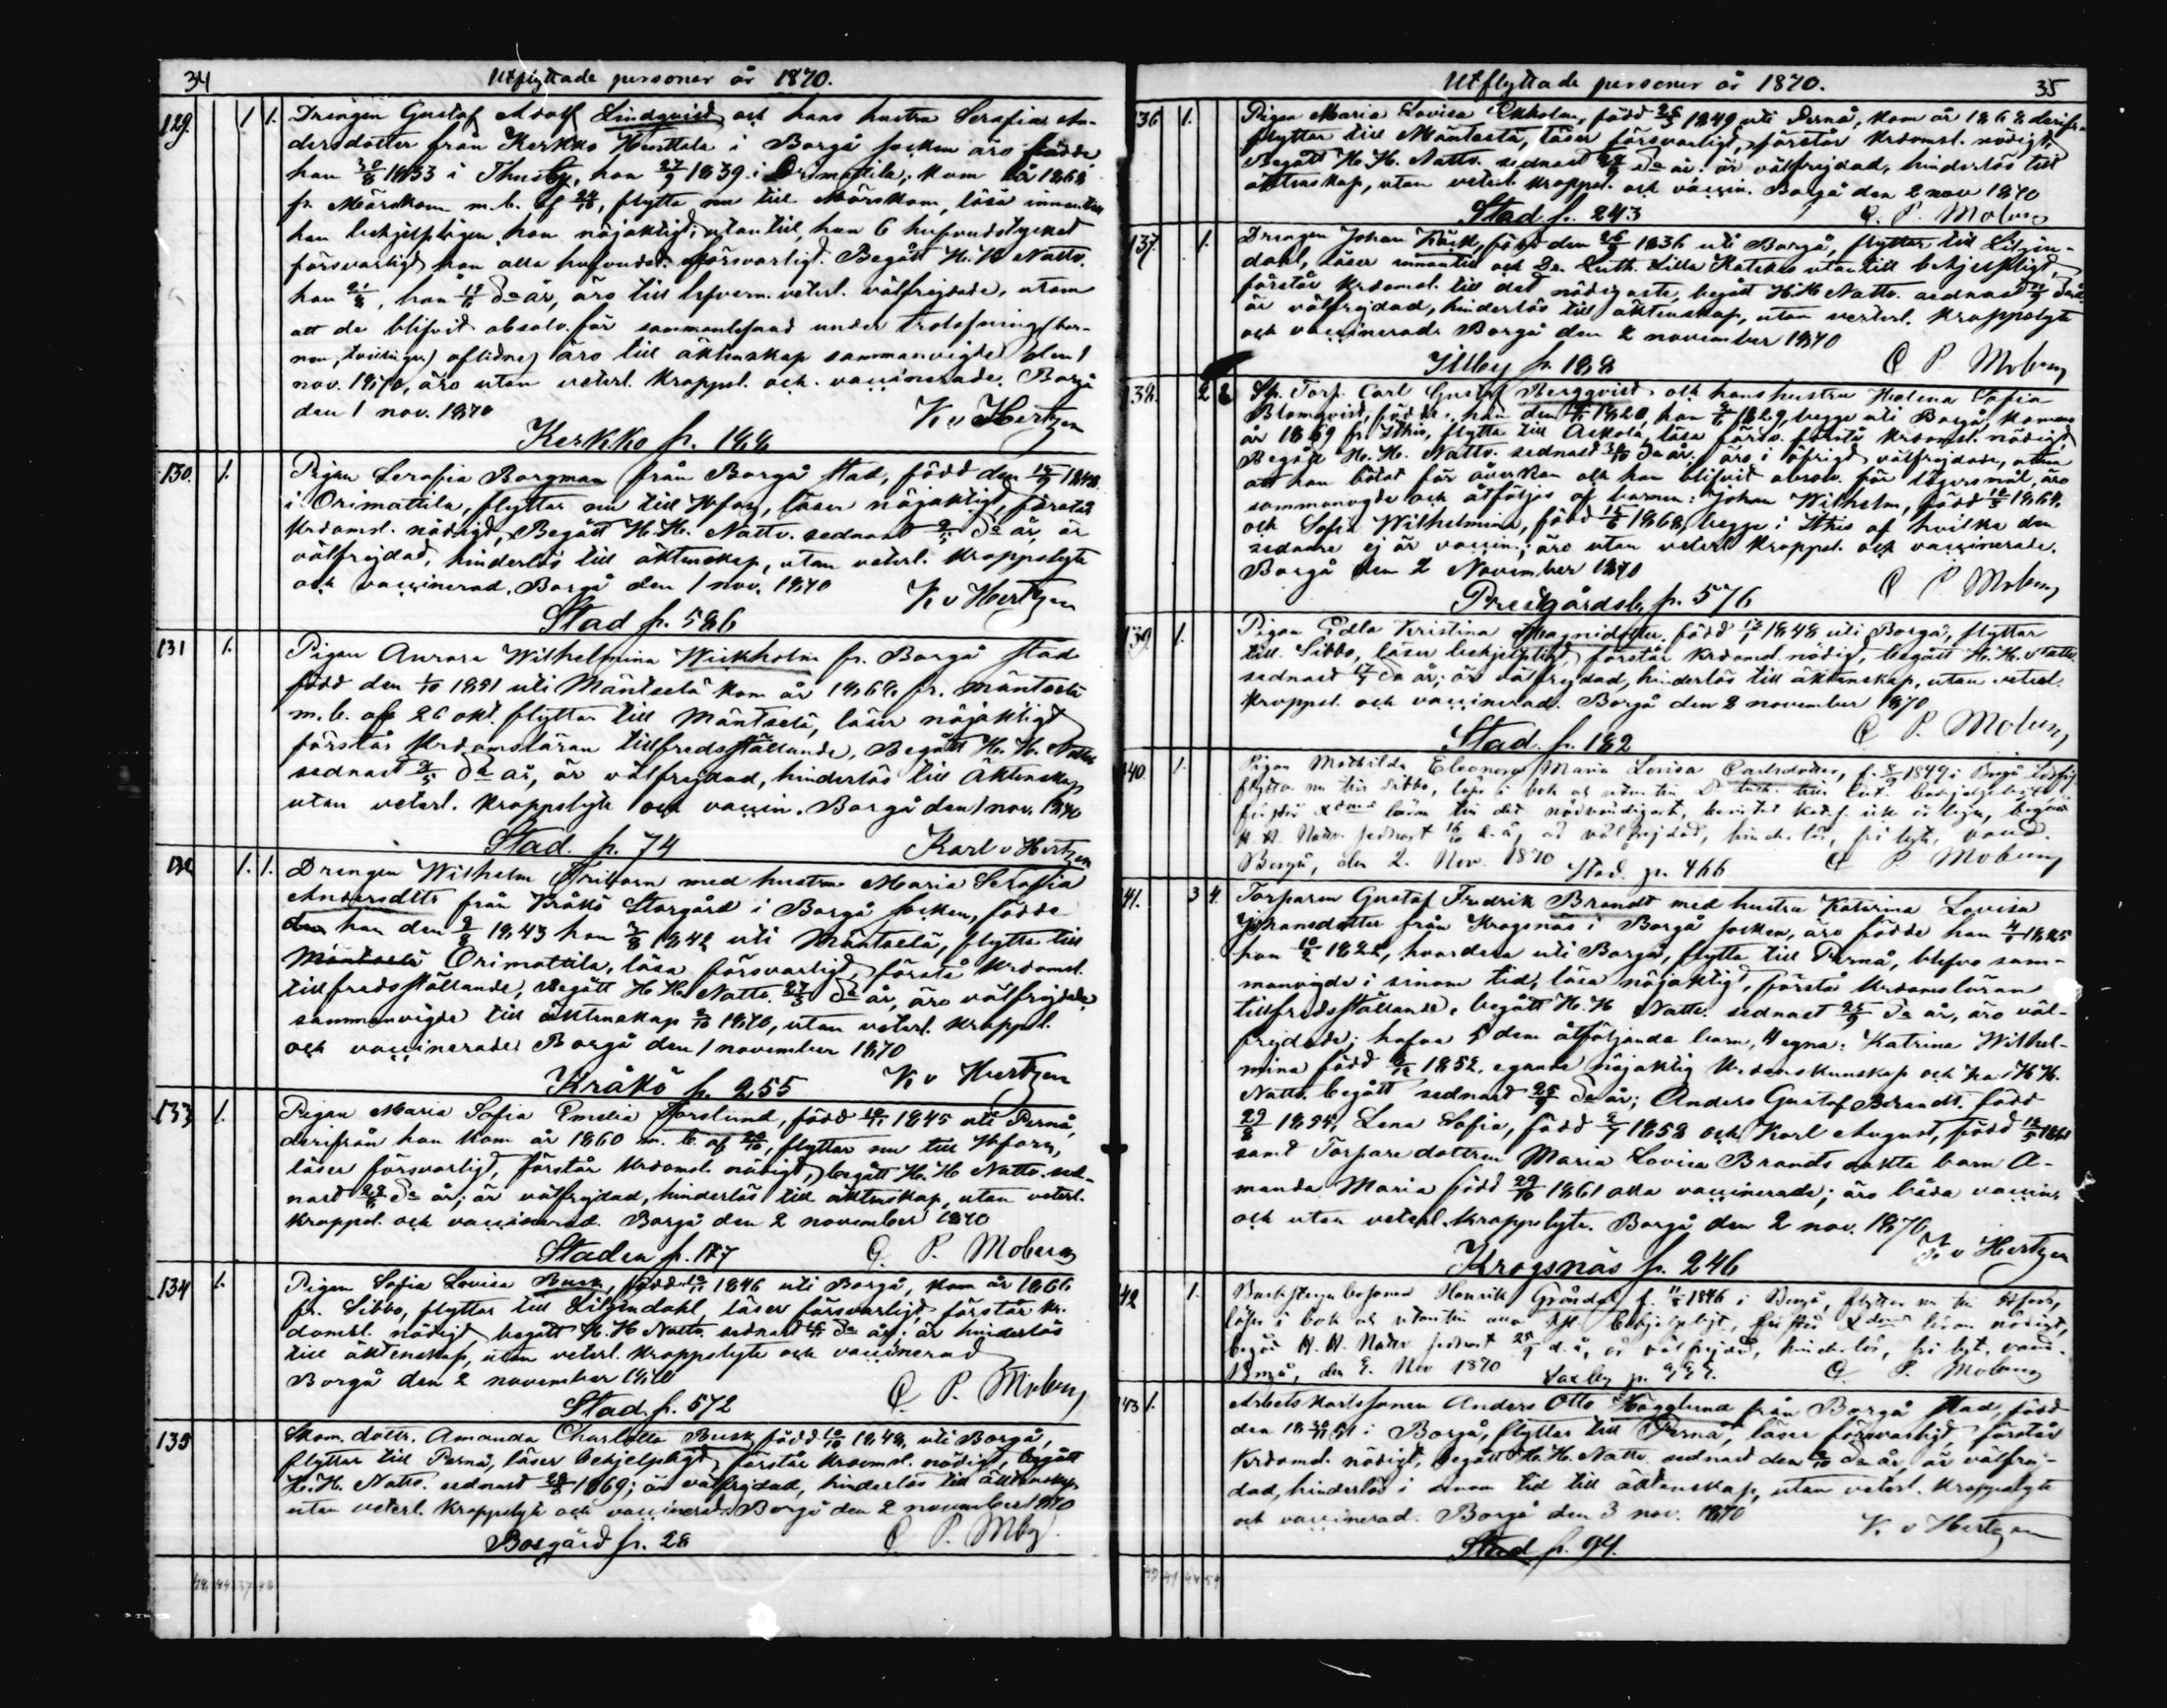 34
Utflyttade personer år 1870.
129. 1 1. Drängen Gustaf Adolf Lindqvist och hans hustru Serafia An-
dersdotter från Kerkko Huuttala i Borgå socken äro födde
han 30/8 1833 i Thusby, hon 27/9 1839 i Orimattila; kom år 1868
fr. Mörskom m. b. af 24/10, flytta nu till Mörskom, läsa innantill
han behjelpligen, hon nöjaktigt; utantill, han 6 hufvudstycket
försvarligt hon alla hufvudst. försvarligt. Begått H. H. Nattv.
han 21/8, hon 19/6 d:a år, äro till lefvern. veterl. välfrejdade, utom
att de blifvit absolv. för sammanlefnad under trolofning (bar-
nen, tvillingar) aflidne) äro till äktenskap sammanvigde den 1
nov. 1870, äro utan veterl. kroppsl. och vaccinerade. Borgå
den 1 nov. 1870 K. v Hertzen
Kerkko p. 188
130. 1. Pigan Serafia Borgman från Borgå stad, född den 14/9 1848
i Orimattila, flyttar nu till Hfors, läser nöjaktigt, förstår
krdomsl. nödigt, Begått H. H. Nattv. sednast d:a år, är
välfrejdad, hinderlös till äktenskap, utan veterl. kroppslyte
och vaccinerad. Borgå den 1 nov. 1870 K v Hertzen
Stad p. 586
131 1. Pigan Aurora Wilhelmina Wickholm fr. Borgå stad
född den 1/10 1851 uti Mäntselä kom år 1868 fr. Mäntselä
m. b. af 26 okt. flyttar till Mäntselä, läser nöjaktigt
förstår krdomsläran tillfredsställande, Begått H. H. Nattv.
sednast d:a år, är välfrejdad, hinderlös till Äktenskap
utan veterl. kroppslyte och vaccin. Borgå den 1 nov. 1870
Stad. p. 74 Karl v Hertzen
132 1. 1. Drängen Wilhelm Friborn med hustru Maria Serafia
Andersdttr från Kråkö Storgård i Borgå socken, födde
den han den 9/8 1843 hon 3/8 1842 uti Mäntselä, flytta till
Mäntselä Orimattila, läsa försvarligt, förstå krdomsl.
tillfredsställande, Begått H. H. Nattv. 27/3 d:a år, äro välfrejdade
sammanvigde till äktenskap 2/10 1870, utan veterl. kroppsl.
och vaccinerade Borgå den 1 november 1870
Kråkö p. 255 K v Hertzen
133 1. Pigan Maria Sofia Emelia Forslund, född 1845 uti Pernå,
derifrån hon kom år 1860 m. b. af 20/10, flyttar nu till Hfors,
läser försvarligt, förstår krdomsl. nödigt, begått H. H. Nattv. sed-
nast d:a år; är välfrejdad, hinderlös till äktenskap, utan veterl.
kroppsl. och vaccinerad. Borgå den 2 november 1870
Staden p. 177 C. P. Moberg
134 1. Pigan Sofia Lovisa Busk, född 1846 uti Borgå, kom år 1866
fr. Sibbo, flyttar till Liljendahl, läser försvarligt, förstår kr.
domsl. nödigt begått H. H. Nattv. sednast d:a år; är hinderlös
till äktenskap, utan veterl. kroppslyte och vaccinerad
Borgå den 2 november 1870
Stad p. 572 C. P. Moberg
135 Skom. dottr. Amanda Charlotta Busk född 10/10 1848, uti Borgå,
flyttar till Pernå, läser behjelpligt, förstår krdomsl. nödigt, begått
H. H. Nattv. sednast 1869; är välfrejdad, hinderlös till äktenskap
utan veterl. kroppslyte och vaccinerad. Borgå den 2 november 1870
Bosgård p. 28 C. P. Mbg.
Utflyttade personer år 1870.
35
136 1. Pigan Maria Lovisa Ekholm, född 26/5 1849 uti Pernå, kom år 1868 derifrån
flyttar till Mäntselä, läser försvarligt, förstår krdomsl. nödigt,
Begått H. H. Nattv. sednast d:a år; är välfrejdad, hinderlös till
äktenskap, utan veterl. kroppsl. och vaccin. Borgå den 2 nov 1870
Stad p. 243 C. P. Moberg
137. 1. Drängen Johan Käck, född den 26/9 1836 uti Borgå, flyttar till Liljen-
dahl, läser innantill och Dr. Luth. Lilla Kateches utantill behjelpligt,
förstår krdomsl. till det nödigaste, begått H. H. Nattv. sednast d:a år
är välfrejdad, hinderlös till äktenskap, utan veterl. kroppslyte
och vaccinerad. Borgå den 2 november 1870
Illby p. 188 C P Moberg
138. 2 2 Sp. Torp. Carl Gustaf Bergqvist och hans hustru Helena Sofia
Blomqvist, födde, han den 1820, hon 1829, begge uti Borgå, komne
år 1869 fr. Ithis, flytta till Askola, läsa försv. förstå krdomsl. nödigt
Begått H. H. Nattv. sednast d:a år; äro i öfrigt välfrejdade, utan
att han bötat för åverkan och hon blifvit absolv. för lägersmål, äro
sammanvigde och åtföljes af barnen: Johan Wilhelm, född 12/5 1864,
och Sofia Wilhelmina, född 15/6 1868, begge i Ithis af hvilka den
sednare ej är vaccin.; äro utan veterl kroppsl. och vaccinerade.
Borgå den 2 November 1870
Prestgårdsb. p. 576 C P Moberg
139. 1. Pigan Edla Kristina Magnidotter, född 13/1 1848 uti Borgå, flyttar
till Sibbo, läser behjelpligt, förstår krdomsl. nödigt, begått H. H. Nattv.
sednast 17/7 d:a år; är välfrejdad, hinderlös till äktenskap, utan veterl.
kroppsl. och vaccinerad. Borgå den 2 november 1870
Stad. p. 182 C P. Moberg
140. 1. Pigan Mathilda Eleonora Maria Lovisa Carlsdotter, f. 8/9 1849 i Borgå
flyttar nu till Sibbo, läser i bok och utantill
H. H. Nattv. sednast 16/10 d. å, är välfrejdad, hinderlös, fri lyte, vaccin.
Borgå, den 2. Nov. 1870 Stad. p. 466 C P. Moberg
141. 3 4. Torparen Gustaf Fredrik Brandt med hustru Katarina Lovisa
Johansdotter från Krogsnäs i Borgå socken, äro födde han 4/6 1825
hon 10/2 1822, hvardera uti Borgå, flytta till Pernå, blefvo sam-
manvigde i sinom tid, läsa nöjaktigt, förstå krdomsläran
tillfredsställande, begått H. H Nattv. sednast 25/9 d:a år, äro väl-
frejdade; hafva 5 dem åtföljande barn, 4 egna: Katrina Wilhel-
mina född 1852, egande nöjaktig krdomskunskap och har H H.
Nattv. begått sednast 25/9 d:a år; Anders Gustaf Brandt född
29/8 1854, Lena Sofia, född 1858 och Karl August, född 12/5 1861
samt Torpare dottren Maria Lovisa Brandts oäkta barn A-
manda Maria född 29/10 1861 alla vaccinerade; äro båda vaccin.
och utan veterl. kroppslyte. Borgå den 2 nov. 1870
Krogsnäs p. 246 K v Hertzen
142 1. Backstugu besonen Henrik Gröndal f. 11/8 1846 i Borgå, flyttar nu till Hfors,
läser i bok och utantill behjelpligt, förstår läran nödigt,
begått H. H. Nattv sednast d. å, är välfrejdad, hinderlös, fri lyt, vaccin.
Borgå, den 2. Nov 1870 Saxby p. C. P. Moberg
143 1. Arbets karlssonen Anders Otto Hägglund från Borgå stad, född
den 18 51 i Borgå, flyttar till Pernå, läser försvarligt, förstår
krdomsl. nödigt, begått H. H. Nattv. sednast den d:a år, är välfrej-
dad, hinderlös i sinom tid till äktenskap, utan veterl. kroppslyte
och vaccinerad. Borgå den 3 nov. 1870 K. v Hertzen
Stad p. 94.